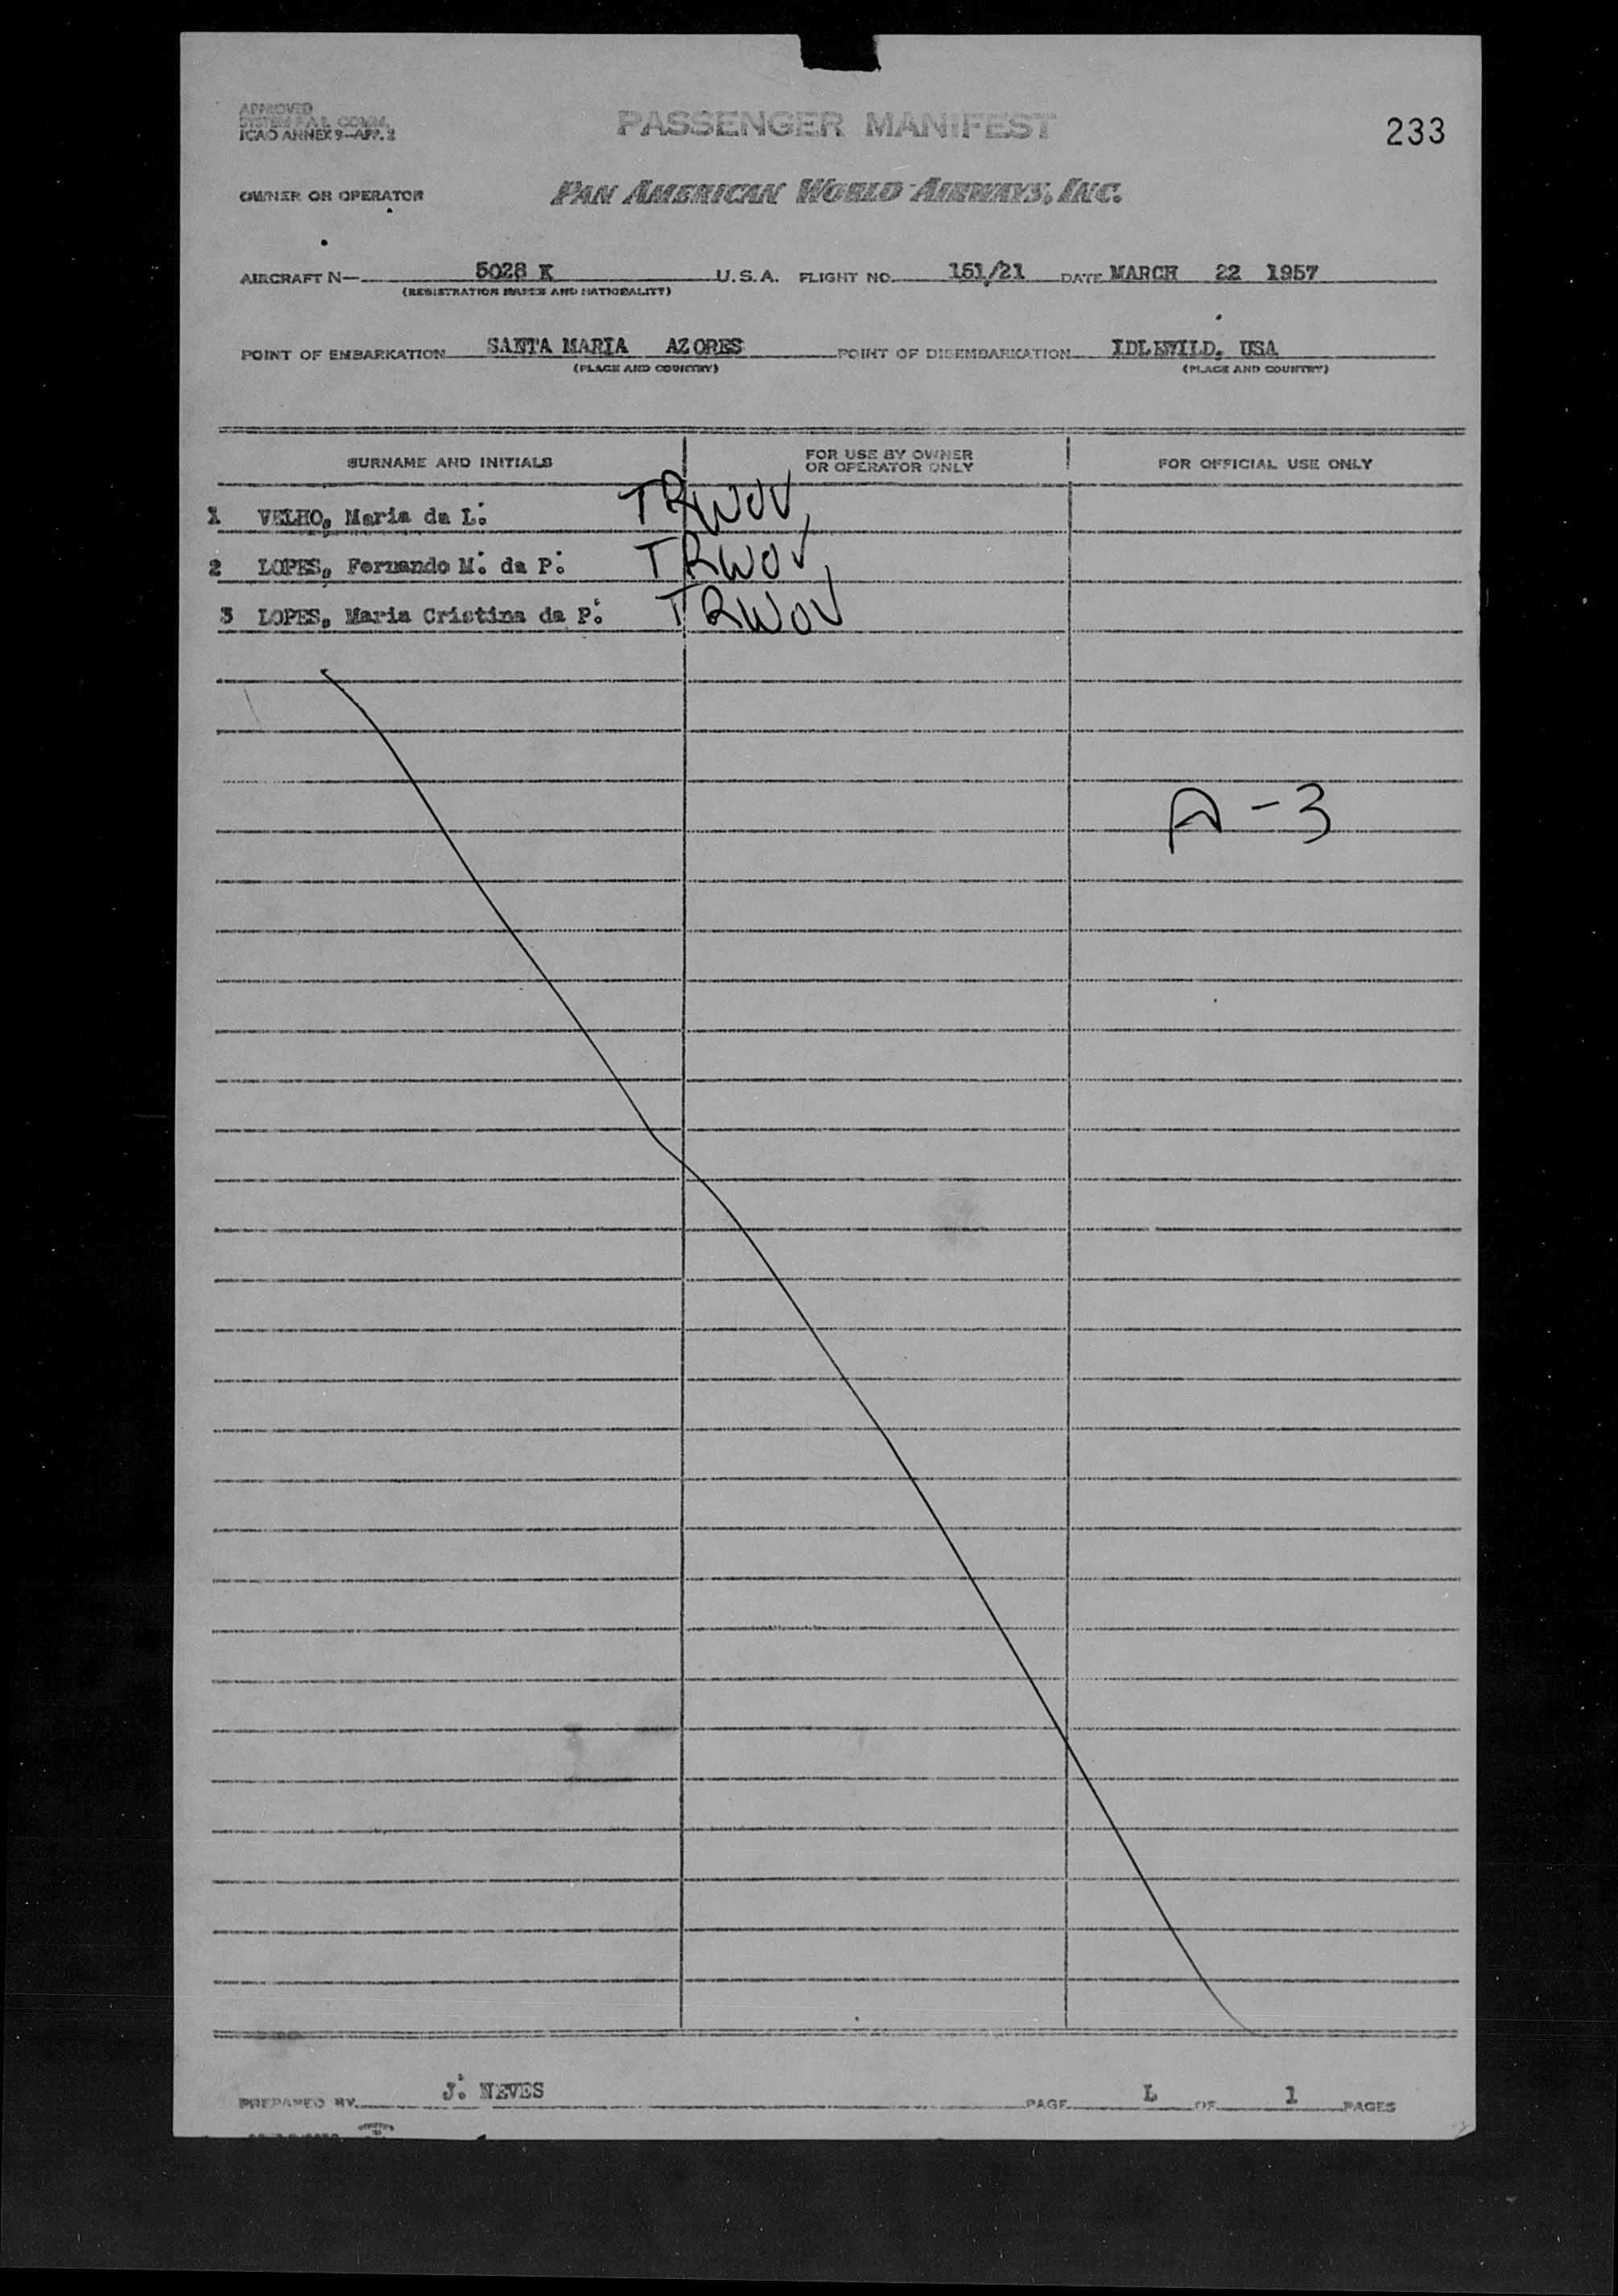 APPROVED
SYSTEM F.A.L. COMM.
ICAO ANNEX 9-APP. 2
PASSENGER MANIFEST
233
OWNER OR OPERATOR
PAN AMERICAN WORLD AIRWAYS, INC.
AIRCRAFT N- 5028 K U.S.A. FLIGHT NO. 151/21 DATE MARCH 22 1957
(REGISTRATION MARKS AND NATIONALITY)
POINT OF EMBARKATION SANTA MARIA AZORES POINT OF DISEMBARKATION IDLEWILD, USA
(PLACE AND COUNTRY) (PLACE AND COUNTRY)
SURNAME AND INITIALS
FOR USE BY OWNER
OR OPERATOR ONLY
FOR OFFICIAL USE ONLY
1 VELHO, Maria da L. TRWOV
2 LOPES, Fernando M. da P. TRWOV
3 LOPES, Maria Cristina da P. TRWOV
A-3
PREPARED BY J. NEVES PAGE L OF 1 PAGES